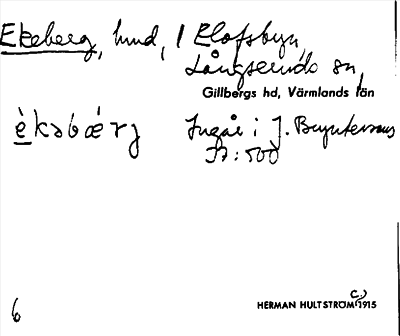 Ekeberg, hmd, i Elofsbyn,
Långseruds sn,
Gillbergs hd, Värmlands län
è̱kəbǽrj Ingår i J. Brynterssons
JR: 500
6 HERMAN HULTSTRÖM C) 1915